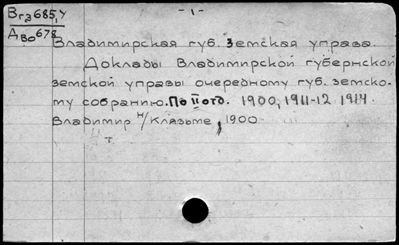 Вга685,у - 1 -
Дво678
Владимирская губ. Земская управа.
Доклады Владимирской губернской
земской управы очередному губ. земско-
му собранию. По II отд. 1900, 1911-12 1914
Владимир н/Клязьме, 1900
4 т.